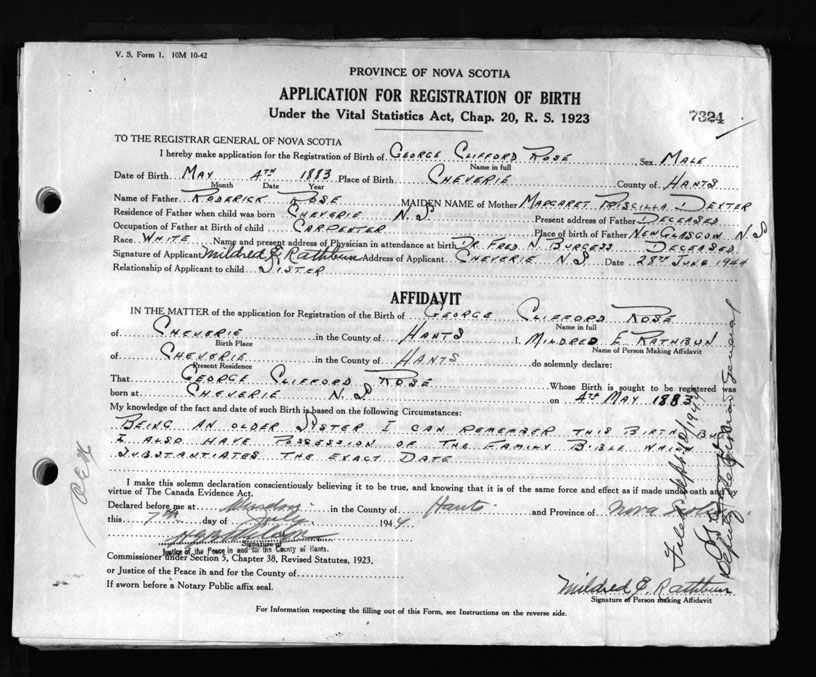 V. S. Form 1. 10M 10-42
PROVINCE OF NOVA SCOTIA
APPLICATION FOR REGISTRATION OF BIRTH
Under the Vital Statistics Act, Chap. 20, R. S. 1923
7324
TO THE REGISTRAR GENERAL OF NOVA SCOTIA
I hereby make application for the Registration of Birth of GEORGE CLIFFORD ROSE, Sex MALE
Name in full
Date of Birth MAY 4TH 1883 Place of Birth CHEVERIE County of HANTS
Month Date Year
Name of Father RODERICK ROSE MAIDEN NAME of Mother MARGARET PRISCILLA DEXTER
Residence of Father when child was born CHEVERIE N. S Present address of Father DECEASED
Occupation of Father at Birth of child CARPENTER Place of birth of Father NEW GLASGOW N. S
Race WHITE Name and present address of Physician in attendance at birth DR. FRED N. BURGESS DECEASED
Signature of Applicant Mildred E. Rathbun Address of Applicant CHEVERIE N. S Date 28TH JUNE 1944
Relationship of Applicant to child SISTER
AFFIDAVIT
IN THE MATTER of the application for Registration of the Birth of GEORGE CLIFFORD ROSE
Name in full
of CHEVERIE in the County of HANTS I, MILDRED E RATHBUN
Birth Place Name of Person Making Affidavit
of CHEVERIE in the County of HANTS do solemnly declare:
Present Residence
That GEORGE CLIFFORD ROSE Whose Birth is sought to be registered was
born at CHEVERIE N. S on 4TH MAY 1883
My knowledge of the fact and date of such Birth is based on the following Circumstances:
BEING AN OLDER SISTER I CAN REMEMBER THIS BIRTH BUT
I ALSO HAVE POSSESSION OF THE FAMILY BIBLE WHICH
SUBSTANTIATES THE EXACT DATE
I make this solemn declaration conscientiously believing it to be true, and knowing that it is of the same force and effect as if made under oath and by
virtue of The Canada Evidence Act.
Declared before me at in the County of Hants and Province of Nova Scotia
this 7th day of July 1944
Signature of
Justice of the Peace in and for the County of Hants.
Commissioner under Section 5, Chapter 38, Revised Statutes, 1923,
or Justice of the Peace in and for the County of
If sworn before a Notary Public affix seal.
Mildred E. Rathbun
Signature of Person making Affidavit
For Information respecting the filling out of this Form, see Instructions on the reverse side.
Deputy Registrar General